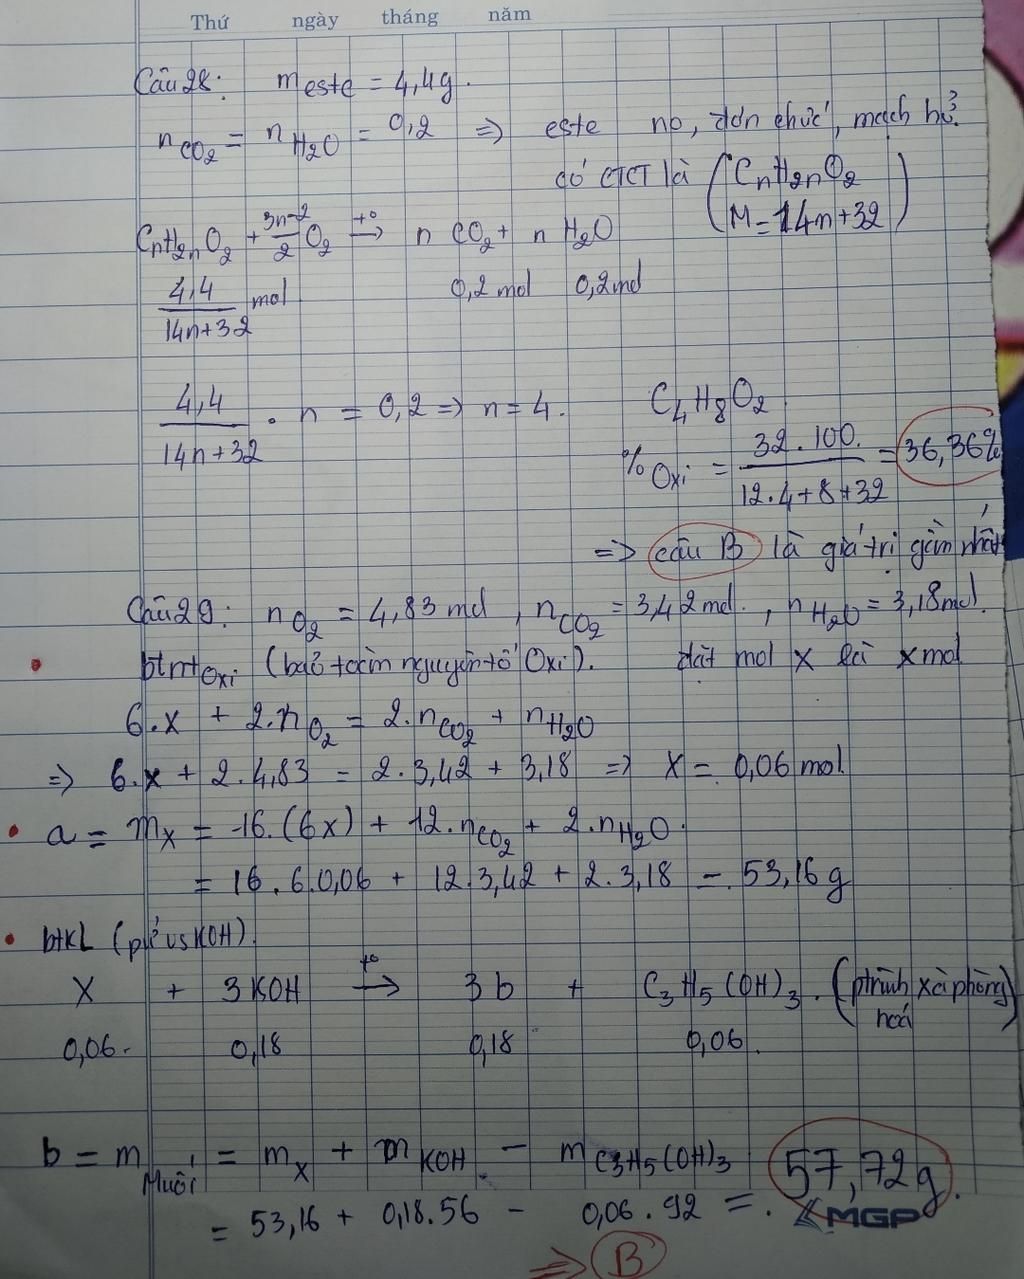 Thứ ngày tháng năm
Câu 28: m este = 4,4g.
n CO2 = n H2O = 0,2 => este no, đơn chức, mạch hở.
có CTCT là (CnH2nO2
M = 14n+32)
CnH2nO2 + 3n-2/2 O2 t° → n CO2 + n H2O
4,4/14n+32 mol 0,2 mol 0,2 mol
4,4/14n+32 . n = 0,2 => n = 4. C4H8O2
% Oxi = 32.100/12.4+8+32 = 36,36%
=> câu B là giá trị gần nhất
Câu 29: n O2 = 4,83 mol, n CO2 = 3,42 mol., n H2O = 3,18 mol.
• btnt Oxi (bảo toàn nguyên tố Oxi). đặt mol X là x mol
6.x + 2.n O2 = 2.n CO2 + n H2O
=> 6.x + 2.4,83 = 2.3,42 + 3,18 => x = 0,06 mol
• a = mX = 16.(6x) + 12.n CO2 + 2.n H2O.
= 16.6.0,06 + 12.3,42 + 2.3,18 = 53,16 g
• btKL (pứ vs KOH).
X + 3KOH t° → 3b + C3H5(OH)3. (ptrình xà phòng hoá)
0,06. 0,18 0,18 0,06.
b = m Muối = mX + m KOH - m C3H5(OH)3
= 53,16 + 0,18.56 - 0,06.92 =. 57,72g.
MGP
=> B